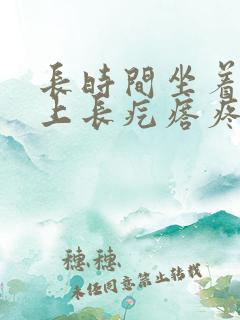 長時間坐着
上長疙瘩疼
穗穗
未经同意禁止转载